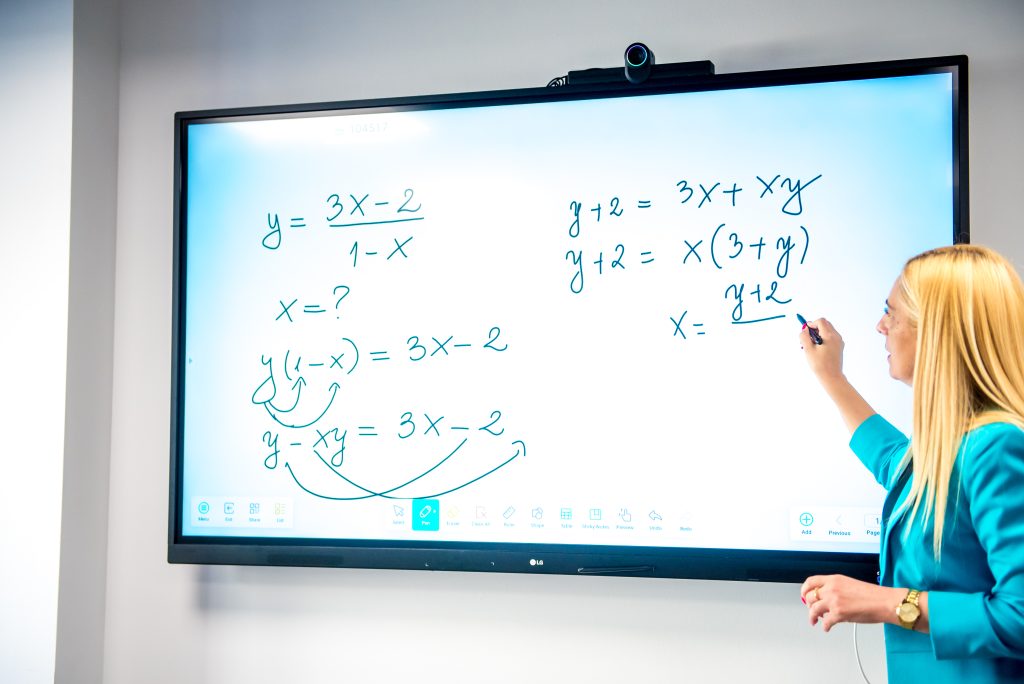 y = (3x-2)/(1-x)
x = ?
y(1-x) = 3x-2
y-xy = 3x-2
y+2 = 3x+xy
y+2 = x(3+y)
y+2
x =
Menu Exit Share
Select Pen Eraser Clear All Shape Table Sticky Notes Undo Redo
Add Previous Page
LG